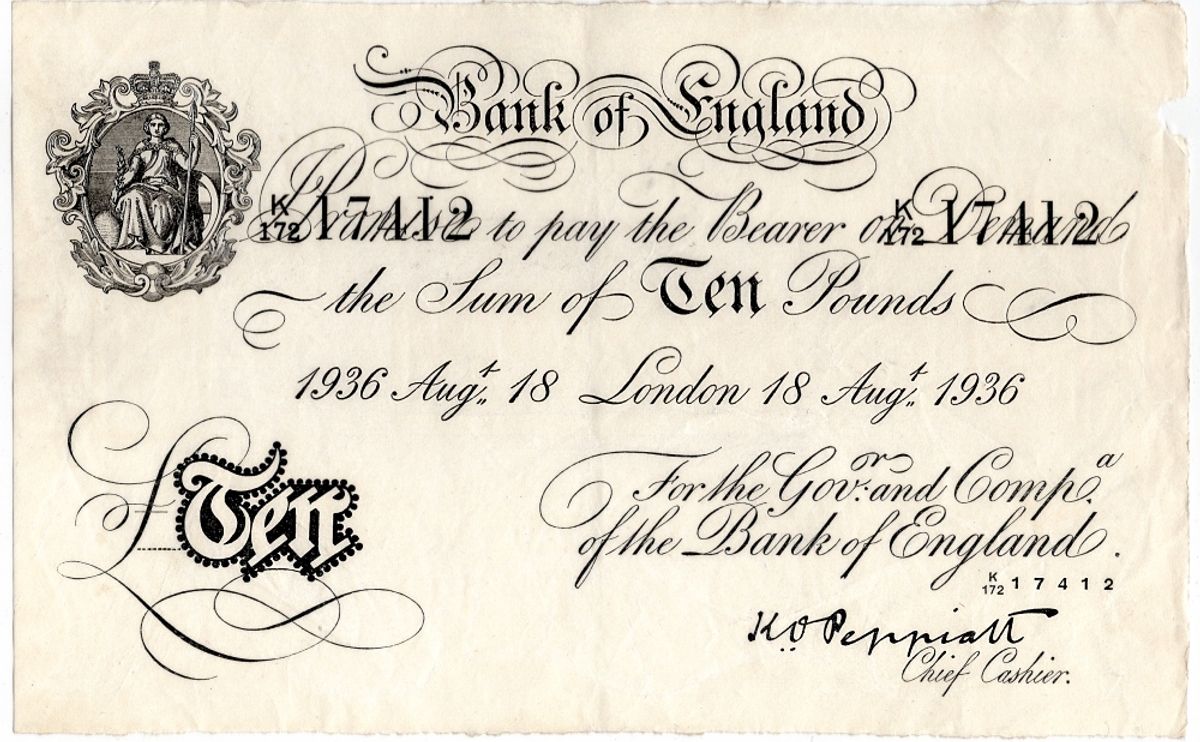 Bank of England
K
172 17412
K
172 17412
I Promise to pay the Bearer on Demand
the Sum of Ten Pounds
1936 Augt. 18 London 18 Augt. 1936
£Ten
For the Govr. and Compa.
of the Bank of England.
K
172 17412
K.O. Peppiatt
Chief Cashier.